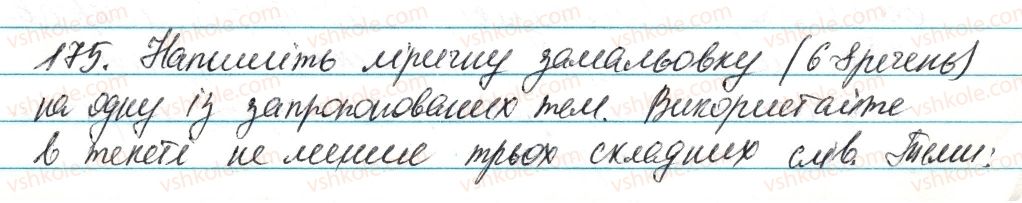 175. Напишіть ліричну замальовку (6-8 речень)
на одну із запропонованих тем. Використайте
в тексті не менше трьох складних слів. Теми: